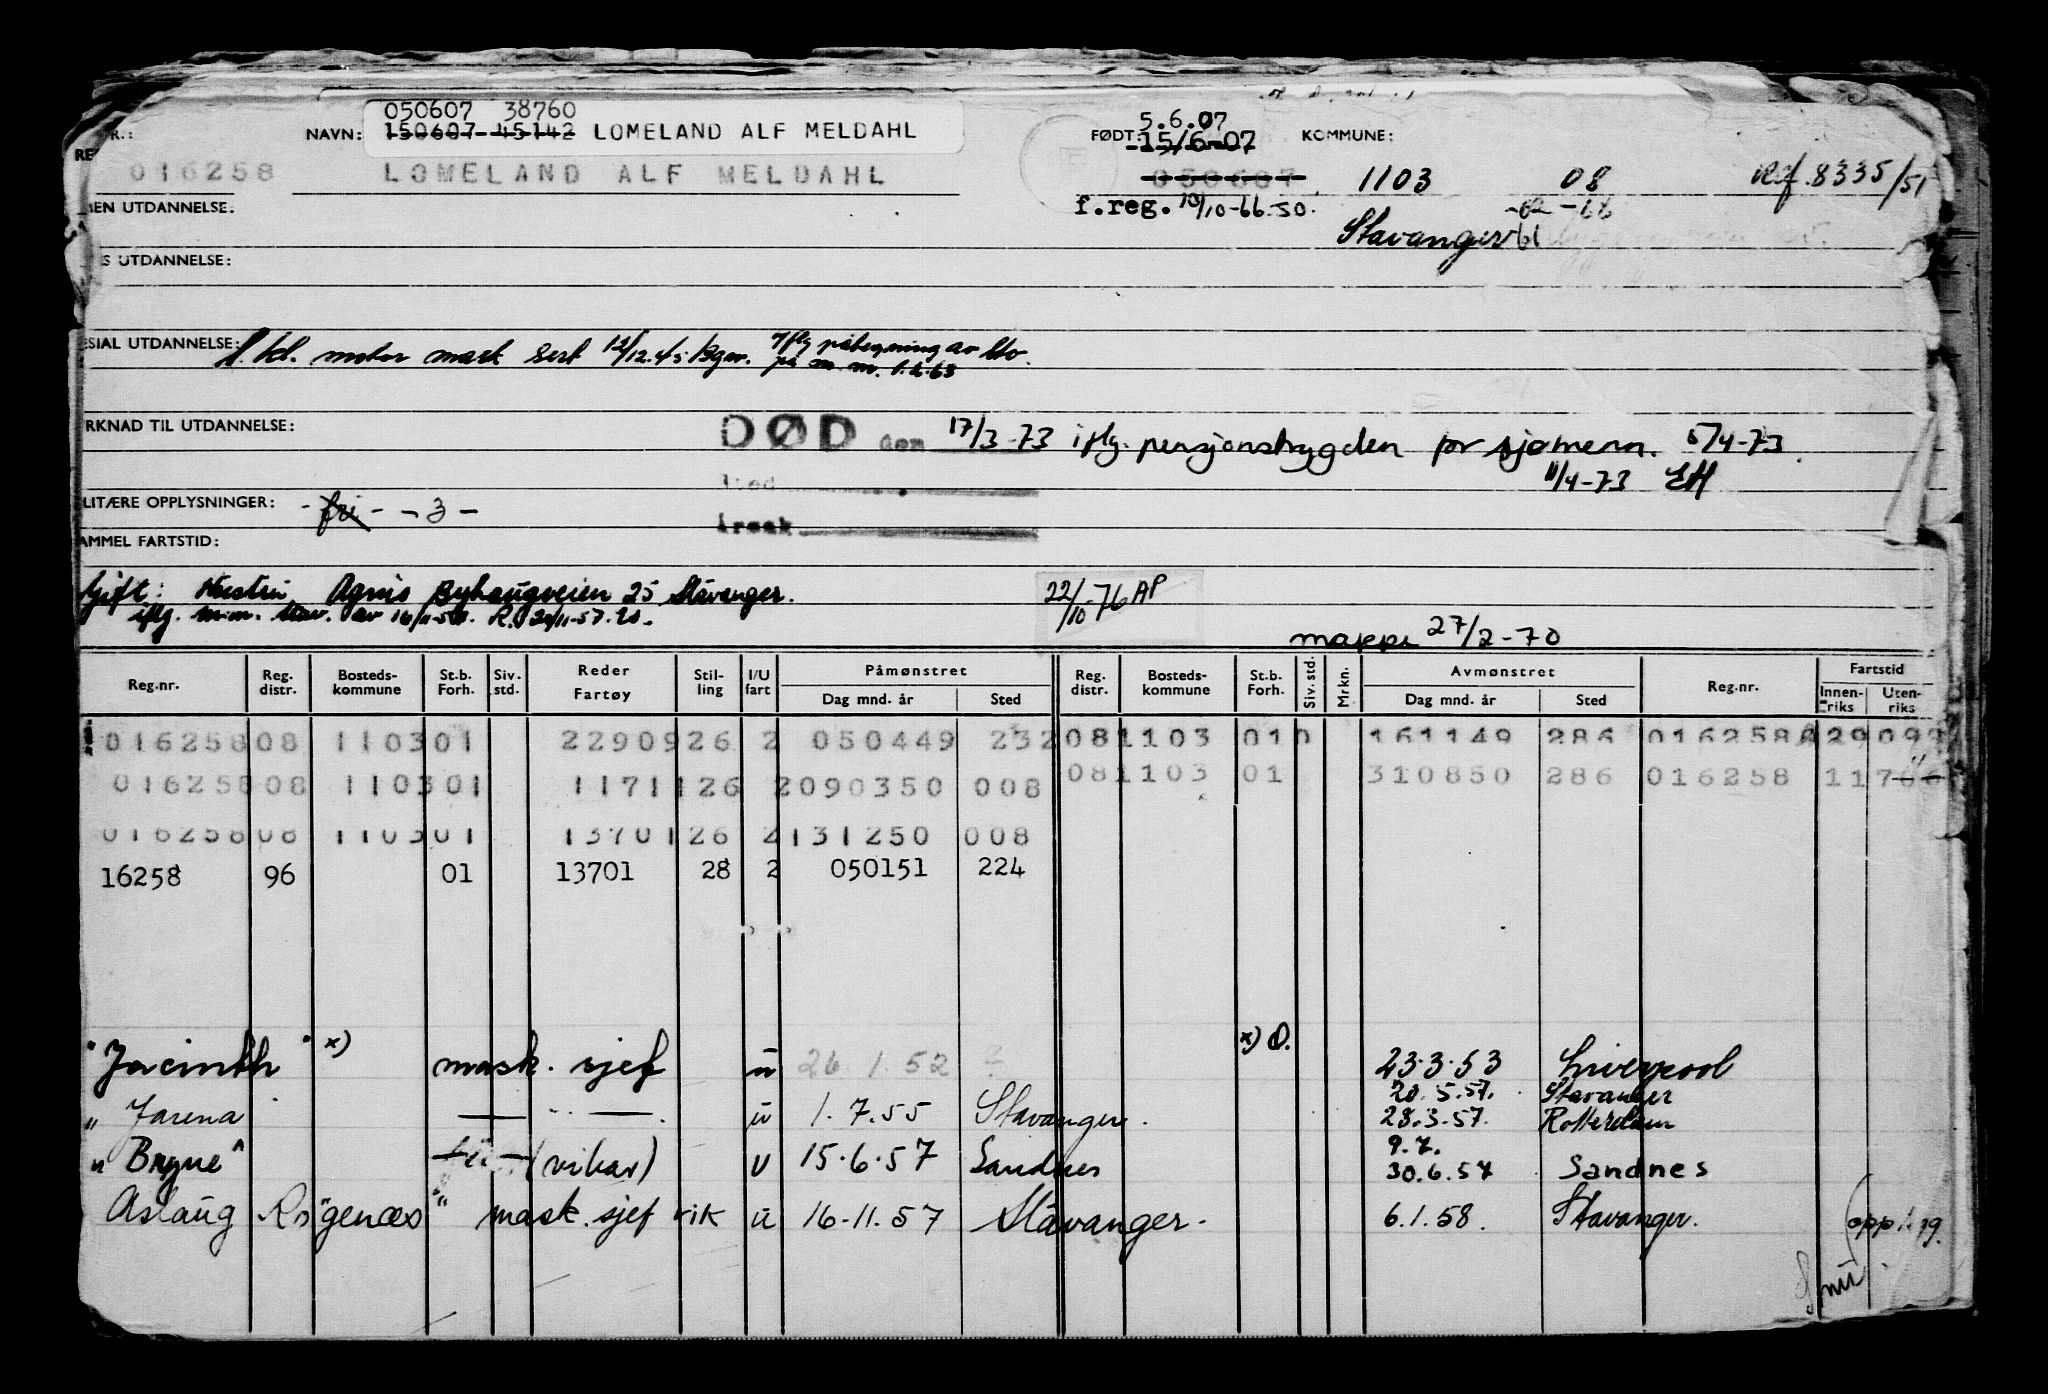 050607 38760
R.: NAVN: 150607 45142 LOMELAND ALF MELDAHL FØDT: 5.6.07 KOMMUNE:
15/6-07
016258 LOMELAND ALF MELDAHL 050607 1103 08 Ref. 8335/51
MEN UTDANNELSE: f.reg. 10/10-66.SO. -02 -68
Stavanger 61
S UTDANNELSE:
ESIAL UTDANNELSE: motor mask sert 12/12.45 Bgn. Iflg påtegning av Stv.
på m.m. 1.2.63
RKNAD TIL UTDANNELSE: DØD den 17/3-73 iflg. pensjonstrygden for sjømenn. 5/4-73.
11/4-73 EH
LITÆRE OPPLYSNINGER: - fri - - 3 -
årsak
AMMEL FARTSTID:
Gift: Hustru Agnes Byhaugveien 25 Stavanger. 22/10-76 AP
iflg. m.m. Stav. av 16/11-57. R. 20/11-57.
mappe 27/2-70
Reg.nr. Reg. distr. Bosteds-kommune St.b. Forh. Siv. std. Reder Fartøy Stil-ling I/U fart Påmønstret Dag mnd. år Sted Reg. distr. Bosteds-kommune St.b. Forh. Siv. std. Mrkn. Avmønstret Dag mnd. år Sted Reg.nr. Fartstid Innen-riks Uten-riks
016258 08 1103 01 22909 26 2 050449 232 08 1103 01 0 161149 286 016258
016258 08 1103 01 11711 26 2 090350 008 08 1103 01 310850 286 016258 117
016258 08 1103 01 13701 26 2 131250 008
16258 96 01 13701 28 2 050151 224
"Jacinth" x) mask. sjef u 26 1.52 x) O. 23.3.53 Liverpool
20.5.57. Stavanger
"Jarena — " — u 1.7.55 Stavanger. 28.3.57. Rotterdam
9.7.
"Bryne" (vikar) u 15.6.57 Sandnes 30.6.57 Sandnes
Aslaug Rogenæs" mask. sjef vik u 16-11.57 Stavanger. 6.1.58. Stavanger.